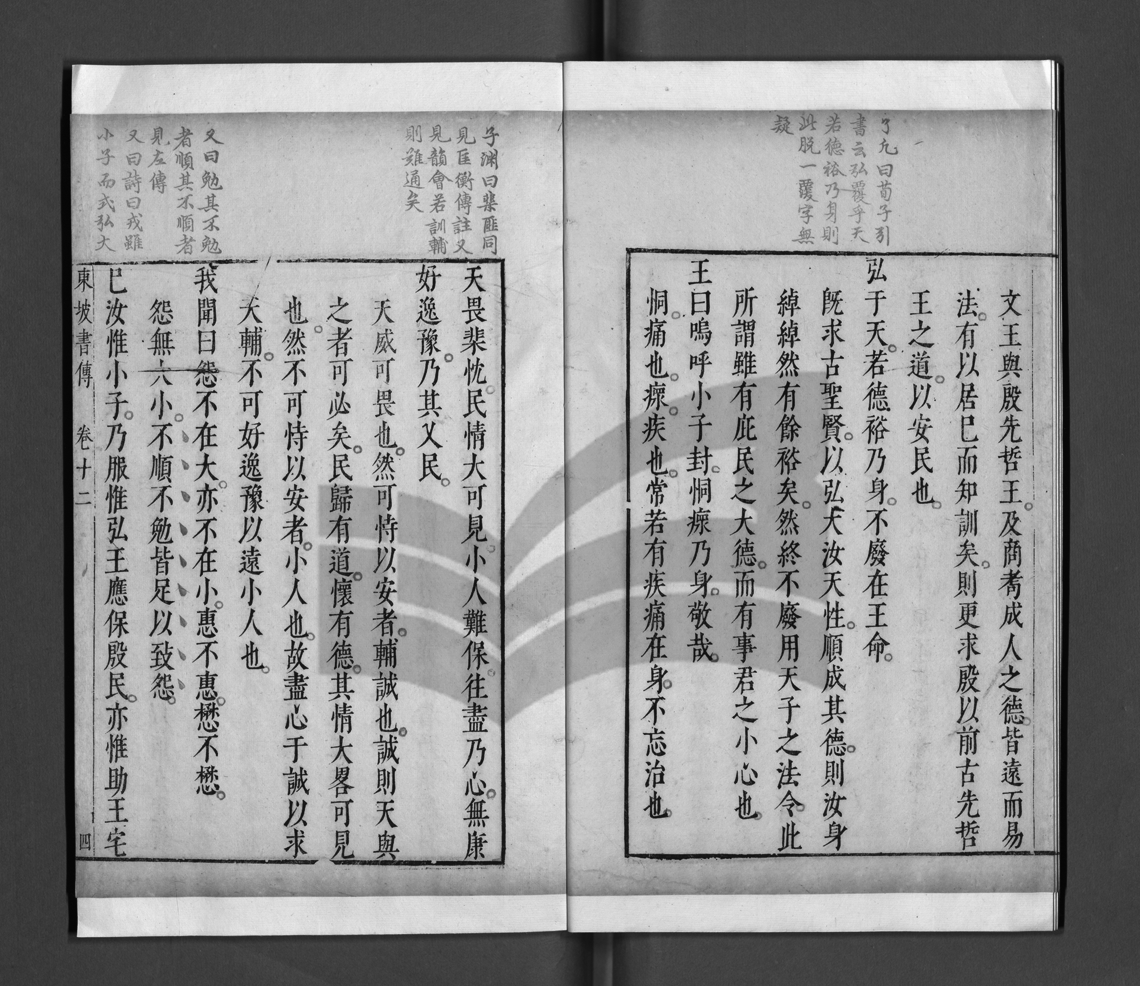 了凡曰荀子引
書云弘覆乎天
若德裕乃身則
此脫一覆字無
疑
文王與殷先哲王。及商耇成人之德。皆遠而易
法。有以居已而知訓矣。則更求殷以前古先哲
王之道。以安民也。
弘于天。若德裕乃身。不廢在王命。
旣求古聖賢。以弘大汝天性。順成其德。則汝身
綽綽然有餘裕矣。然終不廢用天子之法令。此
所謂雖有庇民之大德。而有事君之小心也。
王曰嗚呼小子封。恫瘝乃身。敬哉。
恫痛也。瘝疾也。常若有疾痛在身。不忘治也。
子淵曰棐匪同
見匡衡傳註又
見韻會若訓輔
則難通矣
天畏棐忱。民情大可見。小人難保。往盡乃心。無康
好逸豫。乃其乂民。
天威可畏也。然可恃以安者。輔誠也。誠則天與
之者可必矣。民歸有道。懷有德。其情大畧可見
也。然不可恃以安者。小人也。故盡心于誠以求
天輔。不可好逸豫以遠小人也。
又曰勉其不勉
者順其不順者
見左傳
又曰詩曰戎雖
小子而式弘大
我聞曰怨不在大。亦不在小。惠不惠。懋不懋。
怨無大小。不順不勉皆足以致怨。
巳汝惟小子。乃服惟弘王應保殷民。亦惟助王宅
東坡書傳 卷十二 四